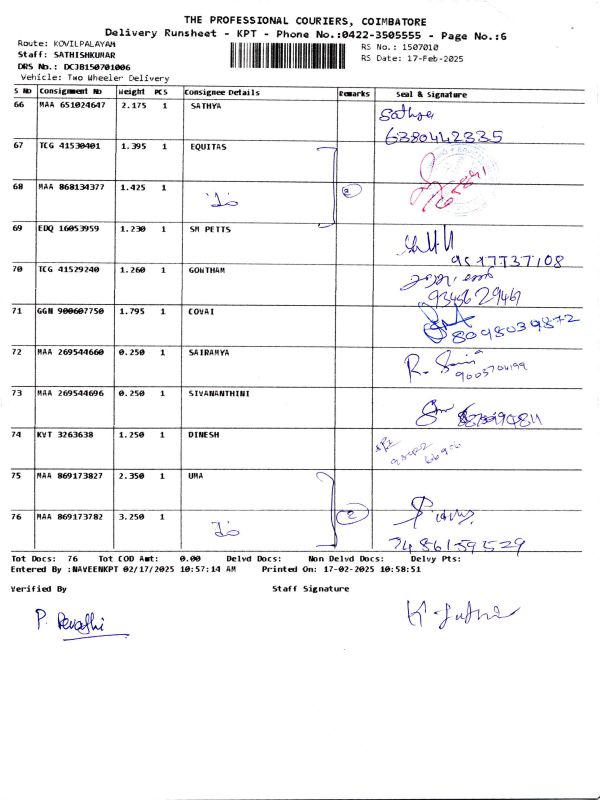 THE PROFESSIONAL COURIERS, COIMBATORE
Delivery Runsheet - KPT - Phone No.:0422-3505555 - Page No.:6
Route: KOVILPALAYAM
Staff: SATHISHKUMAR
DRS No.: DCJB150701006
Vehicle: Two Wheeler Delivery
RS No.: 1507010
RS Date: 17-Feb-2025
S No Consignment No Weight PCS Consignee Details Remarks Seal & Signature
66 MAA 651024647 2.175 1 SATHYA Sathya
6380442335
67 TCG 41530401 1.395 1 EQUITAS
68 MAA 868134377 1.425 1 2
69 EDQ 16053959 1.230 1 SM PETTS
9517737108
70 TCG 41529240 1.260 1 GOWTHAM
9345629467
71 GGN 900607750 1.795 1 COVAI
8098039872
72 MAA 269544660 0.250 1 SAIRAMYA
73 MAA 269544696 0.250 1 SIVANANTHINI
74 KVT 3263638 1.250 1 DINESH
75 MAA 869173827 2.350 1 UMA
76 MAA 869173782 3.250 1 2
Tot Docs: 76 Tot COD Amt: 0.00 Delvd Docs: Non Delvd Docs: Delvy Pts:
Entered By :NAVEENKPT 02/17/2025 10:57:14 AM Printed On: 17-02-2025 10:58:51
Verified By Staff Signature